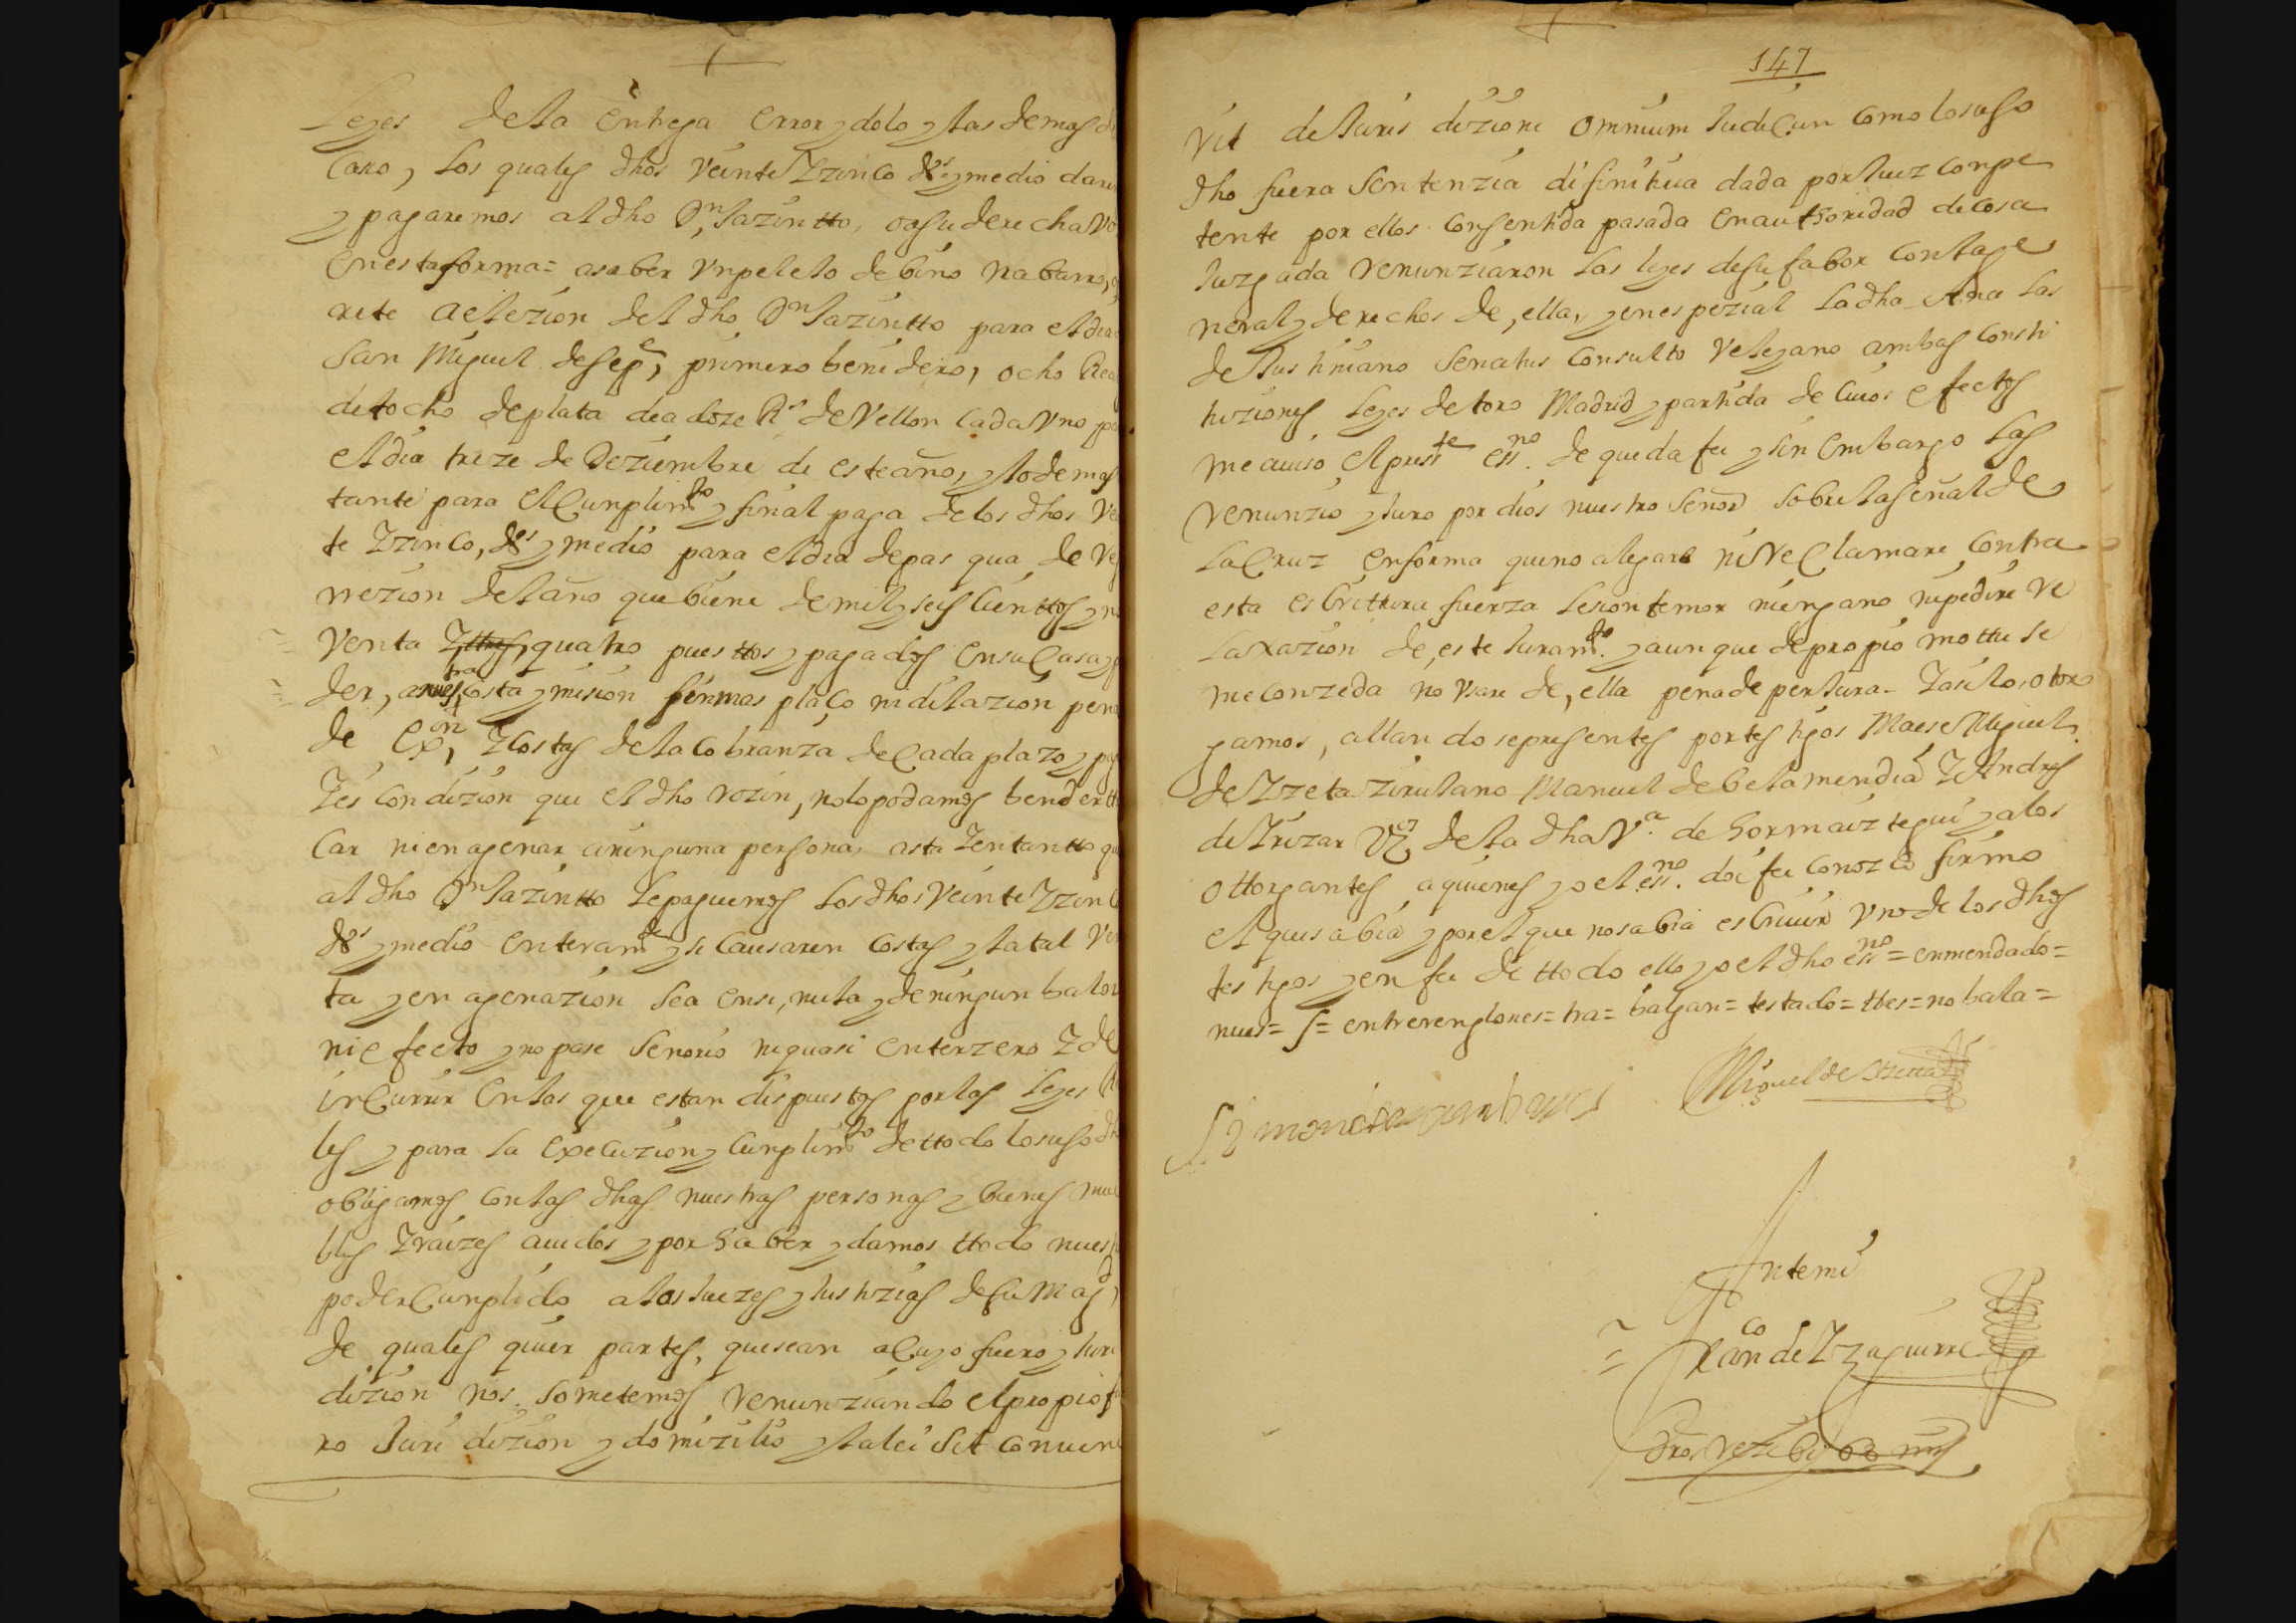 Leyes de la entrega error y dolo y las demas de
caso, los quales dhos veinte Zzinco ds y medio dare
y pagaremos al dho Dn Jazintto, o a su derecha vo
en esta forma = asaber vn pelelo de bino nabarro,
rete a elezion del dho Dn Jazintto para el dia
San Miguel de sepe, primero benidero, ocho Rea
de tocho de plata de a doze Rs de vellon cada vno pa
el dia treze de Deziembre de este año, y lo demas
tante para el cunplimto y final paga de los dhos ve
te Zzinco, ds y medio para el dia de pasqua de Re
rrezion del año que biene de mil y seis cienttos y no
venta Z ttres, quatro puesttos y pagados en su casa y
der, a nues tra costa y mision sin mas plaço ni dilazion pena
de exon, Z costas de la cobranza de cada plazo y pag
Z es condizion que el dho rozin, no lo podamos bender tro
car ni en agenar a ninguna persona, asta Z en tantto que
al dho Dn Jazintto le paguemos los dhos veinte Zzinco
ds y medio enteramte y se causaren costas y la tal ven
ta y en agenazion sea en si, nula y de ningun balor
ni efecto y no pase señorio ni quasi en terzero Z de
incurrir en las que estan dispuestas por las leyes Rea
les y para la execuzion y cunplimto de ttodo lo suso dho
obligamos con las dhas nuestras personas y bienes mue
bles Z raizes auidos y por haber y damos ttodo nuestro
poder cunplido a los juezes y justizias de su Magd,
de quales quier partes, que sean a cuyo fuero y juri
dizion nos sometemos, renunziando el propio fue
ro juridizion y domizilio y la lei sit conuene
147
rit de juris dizione omnium judicun como lo suso
dho fuera sentenzia difinitiua dada por juez conpe
tente por ellos consentida pasada en authoridad de cosa
juzgada renunziaron las leyes de su fabor con la ge
neral y derechos de, ella, y en espezial la dha Ana las
de Justiniano Senatus consulto Veleyano ambas consti
tuziones leyes de toro Madrid y partida de cuios efectos
me auiso el preste essno. de que da fee y sin embargo las
renunzio y juro por dios nuestro señor sobre la señal de
la cruz en forma que no alegare ni reclamare contra
esta escrittura fuerza lesion temor ni engano ni pedire re
laxazion de, este juramto. y aun que de propio mottu se
me conzeda no vsare de, ella pena de perjura = Z asi lo, otor
gamos, allandose presentes por testigos Maese Miguel
de Zzeta zirujano Manuel de belamendia Z Andres
de Yrizar vzos de la dha Va. de hormaiztegui y a los
ottorgantes, a quienes yo el essno. doi fee conozco firmo
el que sabia y por el que no sabia escriuir vno de los dhos
testigos y en fee de ttodo ello yo el dho essno = enmendado =
nues = s = entrerenglones = tra = balgan = testado = ttres = no bala =
Miguel de Zzeta
Antemi
Franco de Yzaguirre